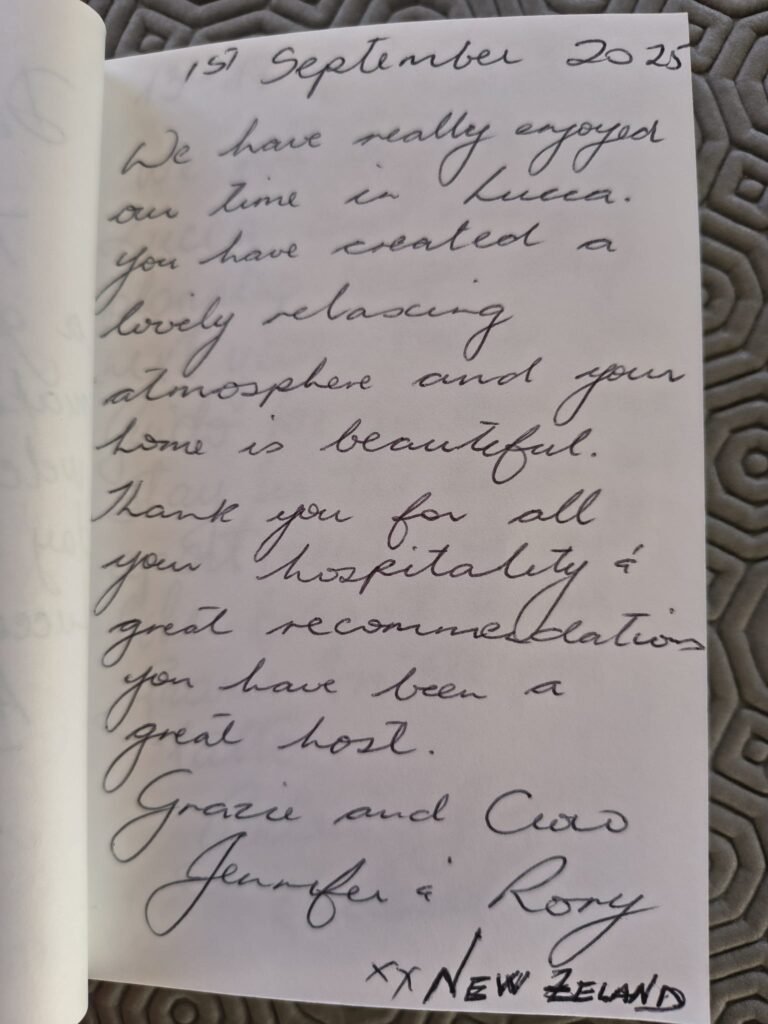 1ST September 2025
We have really enjoyed
our time in Lucca.
You have created a
lovely relaxing
atmosphere and your
home is beautiful.
Thank you for all
your hospitality &
great recommendations
you have been a
great host.
Grazie and Ciao
Jennifer & Rory
xx NEW ZELAND